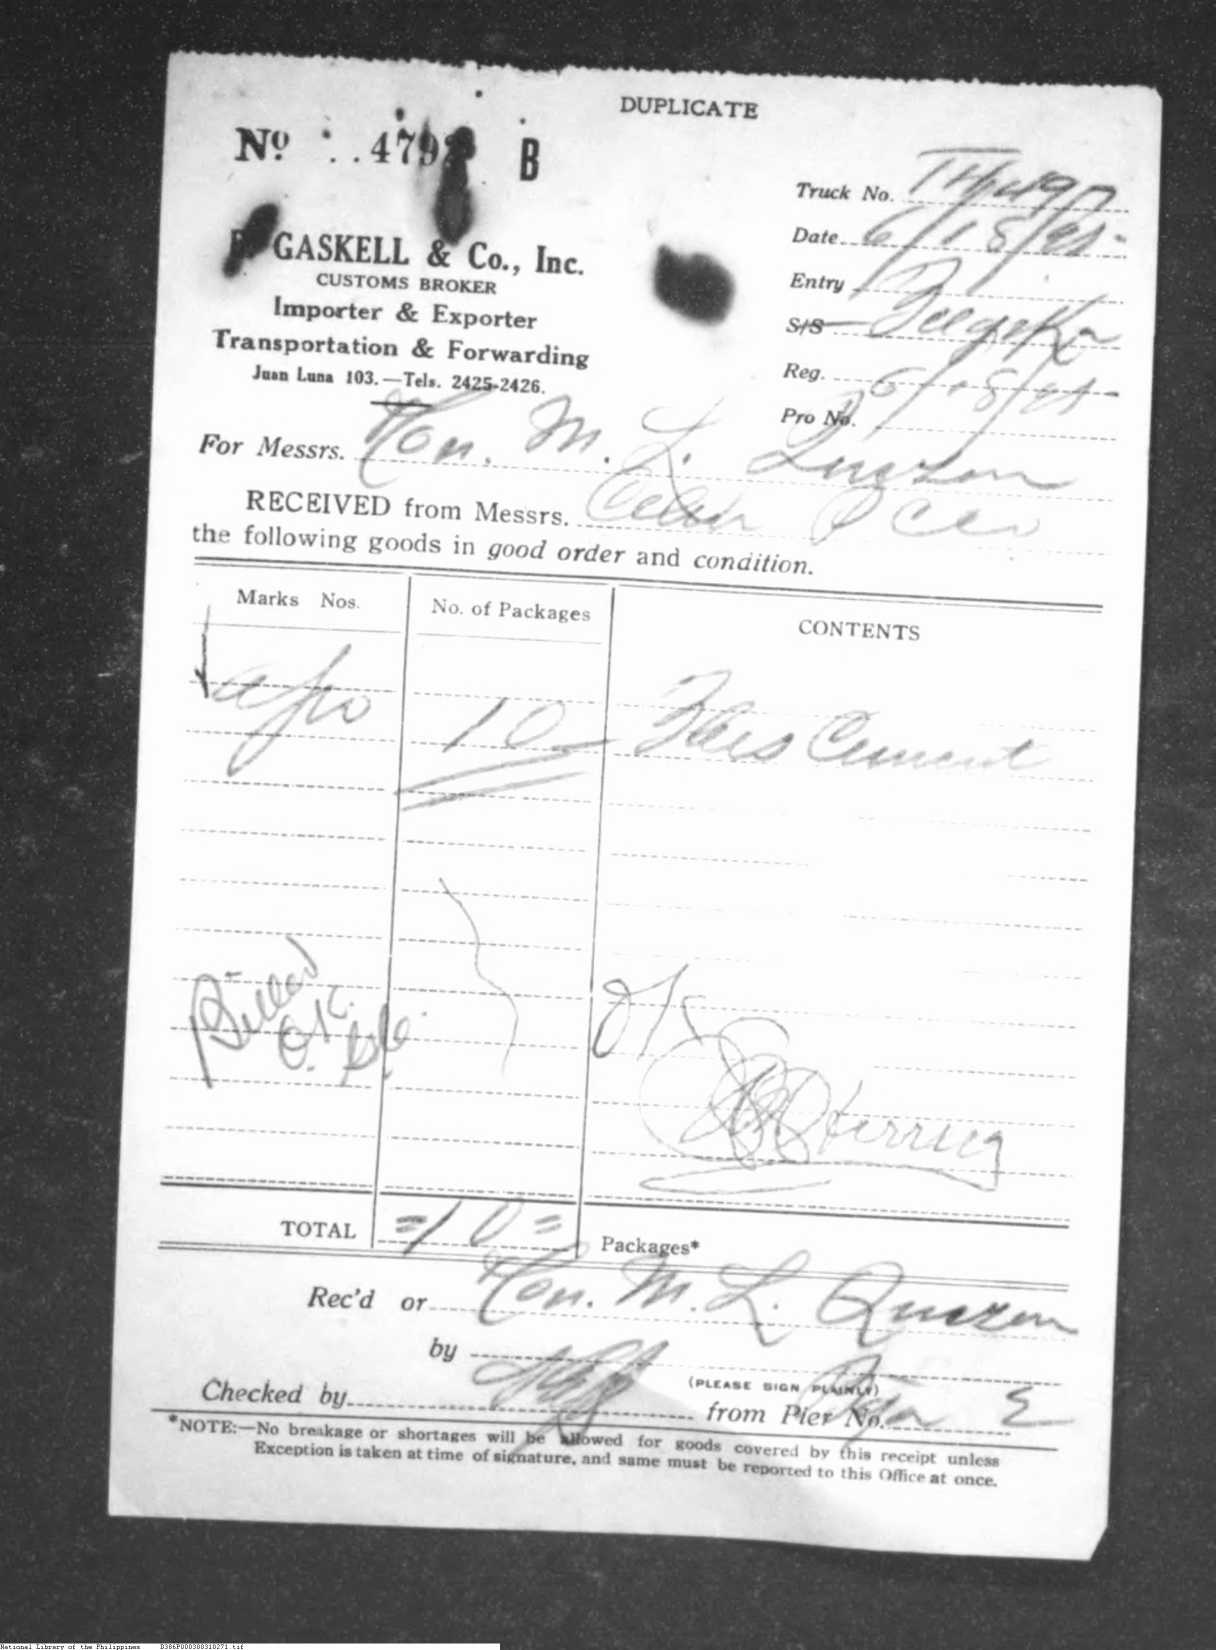 DUPLICATE
Nº 479 B
GASKELL & Co., Inc.
CUSTOMS BROKER
Importer & Exporter
Transportation & Forwarding
Juan Luna 103.—Tels. 2425-2426.
Truck No.
Date 6/18/41
Entry
S/S
Reg. 6/18/41
Pro No.
For Messrs. Hon. M. L. Quezon
RECEIVED from Messrs.
the following goods in good order and condition.
Marks Nos. No. of Packages CONTENTS
Apo 10 Cement
Billed
O.K.
OK
TOTAL =10= Packages*
Rec'd or Hon. M. L. Quezon
by
(PLEASE SIGN PLAINLY)
Checked by from Pier No.
*NOTE:—No breakage or shortages will be allowed for goods covered by this receipt unless
Exception is taken at time of signature, and same must be reported to this Office at once.
National Library of the Philippines